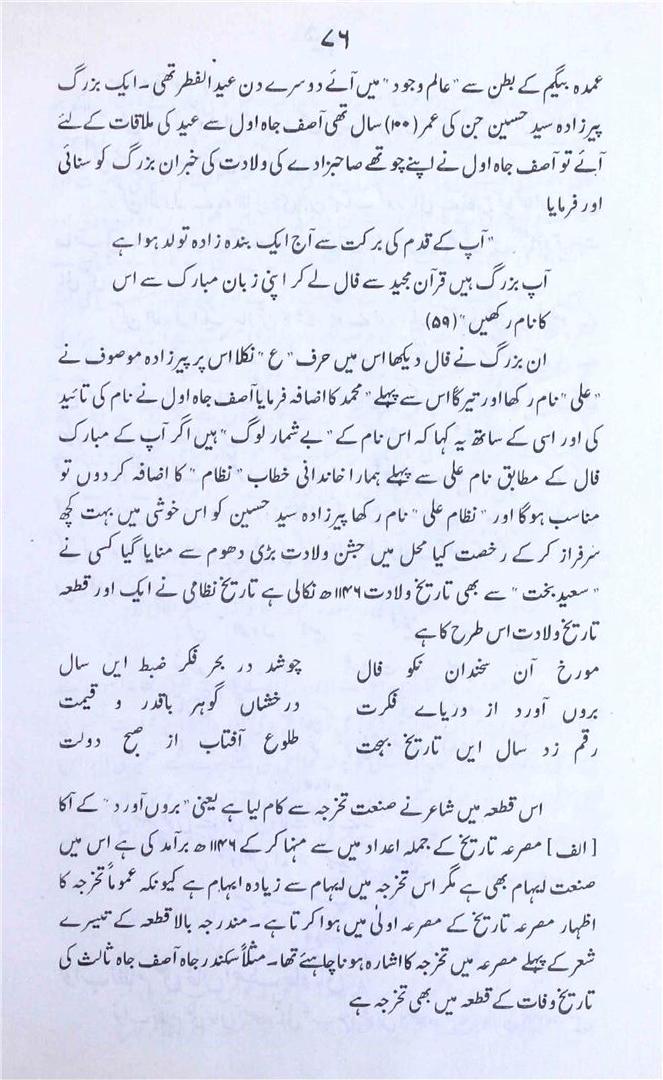 ۷۶
عمدہ بیگم کے بطن سے "عالم وجود" میں آئے دوسرے دن عید الفطر تھی۔ ایک بزرگ
پیرزادہ سید حسین جن کی عمر (۱۰۰) سال تھی آصف جاہ اول سے عید کی ملاقات کے لئے
آئے تو آصف جاہ اول نے اپنے چوتھے صاحبزادے کی ولادت کی خبران بزرگ کو سنائی
اور فرمایا
"آپ کے قدم کی برکت سے آج ایک بندہ زادہ تولد ہوا ہے
آپ بزرگ ہیں قرآن مجید سے فال لے کر اپنی زبان مبارک سے اس
کا نام رکھیں" (۵۹)
ان بزرگ نے فال دیکھا اس میں حرف "ع" نکلا اس پر پیرزادہ موصوف نے
"علی" نام رکھا اور تیرگاً اس سے پہلے "محمد کا اضافہ فرمایا آصف جاہ اول نے نام کی تائید
کی اور اسی کے ساتھ یہ کہا کہ اس نام کے "بے شمار لوگ" ہیں اگر آپ کے مبارک
فال کے مطابق نام علی سے پہلے ہمارا خاندانی خطاب "نظام" کا اضافہ کر دوں تو
مناسب ہوگا اور "نظام علی" نام رکھا پیرزادہ سید حسین کو اس خوشی میں بہت کچھ
سرفراز کر کے رخصت کیا محل میں جشن ولادت بڑی دھوم سے منایا گیا کسی نے
"سعید بخت" سے بھی تاریخ ولادت ۱۱۴۶ھ نکالی ہے تاریخ نظامی نے ایک اور قطعہ
تاریخ ولادت اس طرح کا ہے
مورخ آن سخنداں نکو فال چوشد در بحر فکر ضبط ایں سال
بروں آورد از دریاے فکرت درخشاں گوہر باقدر و قیمت
رقم زد سال ایں تاریخ بہجت طلوع آفتاب از صبح دولت
اس قطعہ میں شاعر نے صنعت تخرجہ سے کام لیا ہے یعنی "بروں آورد" کے آ کا
[الف] مصرعہ تاریخ کے جملہ اعداد میں سے منہا کر کے ۱۱۴۶ھ برآمد کی ہے اس میں
صنعت ایہام بھی ہے مگر اس تخرجہ میں ایہام سے زیادہ ابہام ہے کیونکہ عموماً تخرجہ کا
اظہار مصرعہ تاریخ کے مصرعہ اولیٰ میں ہوا کرتا ہے۔ مندرجہ بالا قطعہ کے تیسرے
شعر کے پہلے مصرعہ میں تخرجہ کا اشارہ ہونا چاہئے تھا۔ مثلاً سکندر جاہ آصف جاہ ثالث کی
تاریخ وفات کے قطعہ میں بھی تخرجہ ہے